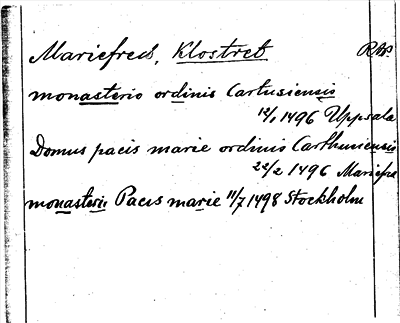 Mariefred, Klostret RAP.
monasterio ordinis Cartusiensis
12/1 1496 Uppsala
Domus pacis marie ordinis Carthusiensis
22/2 1496 Mariefre
monasterii Pacis marie 11/7 1498 Stockholm